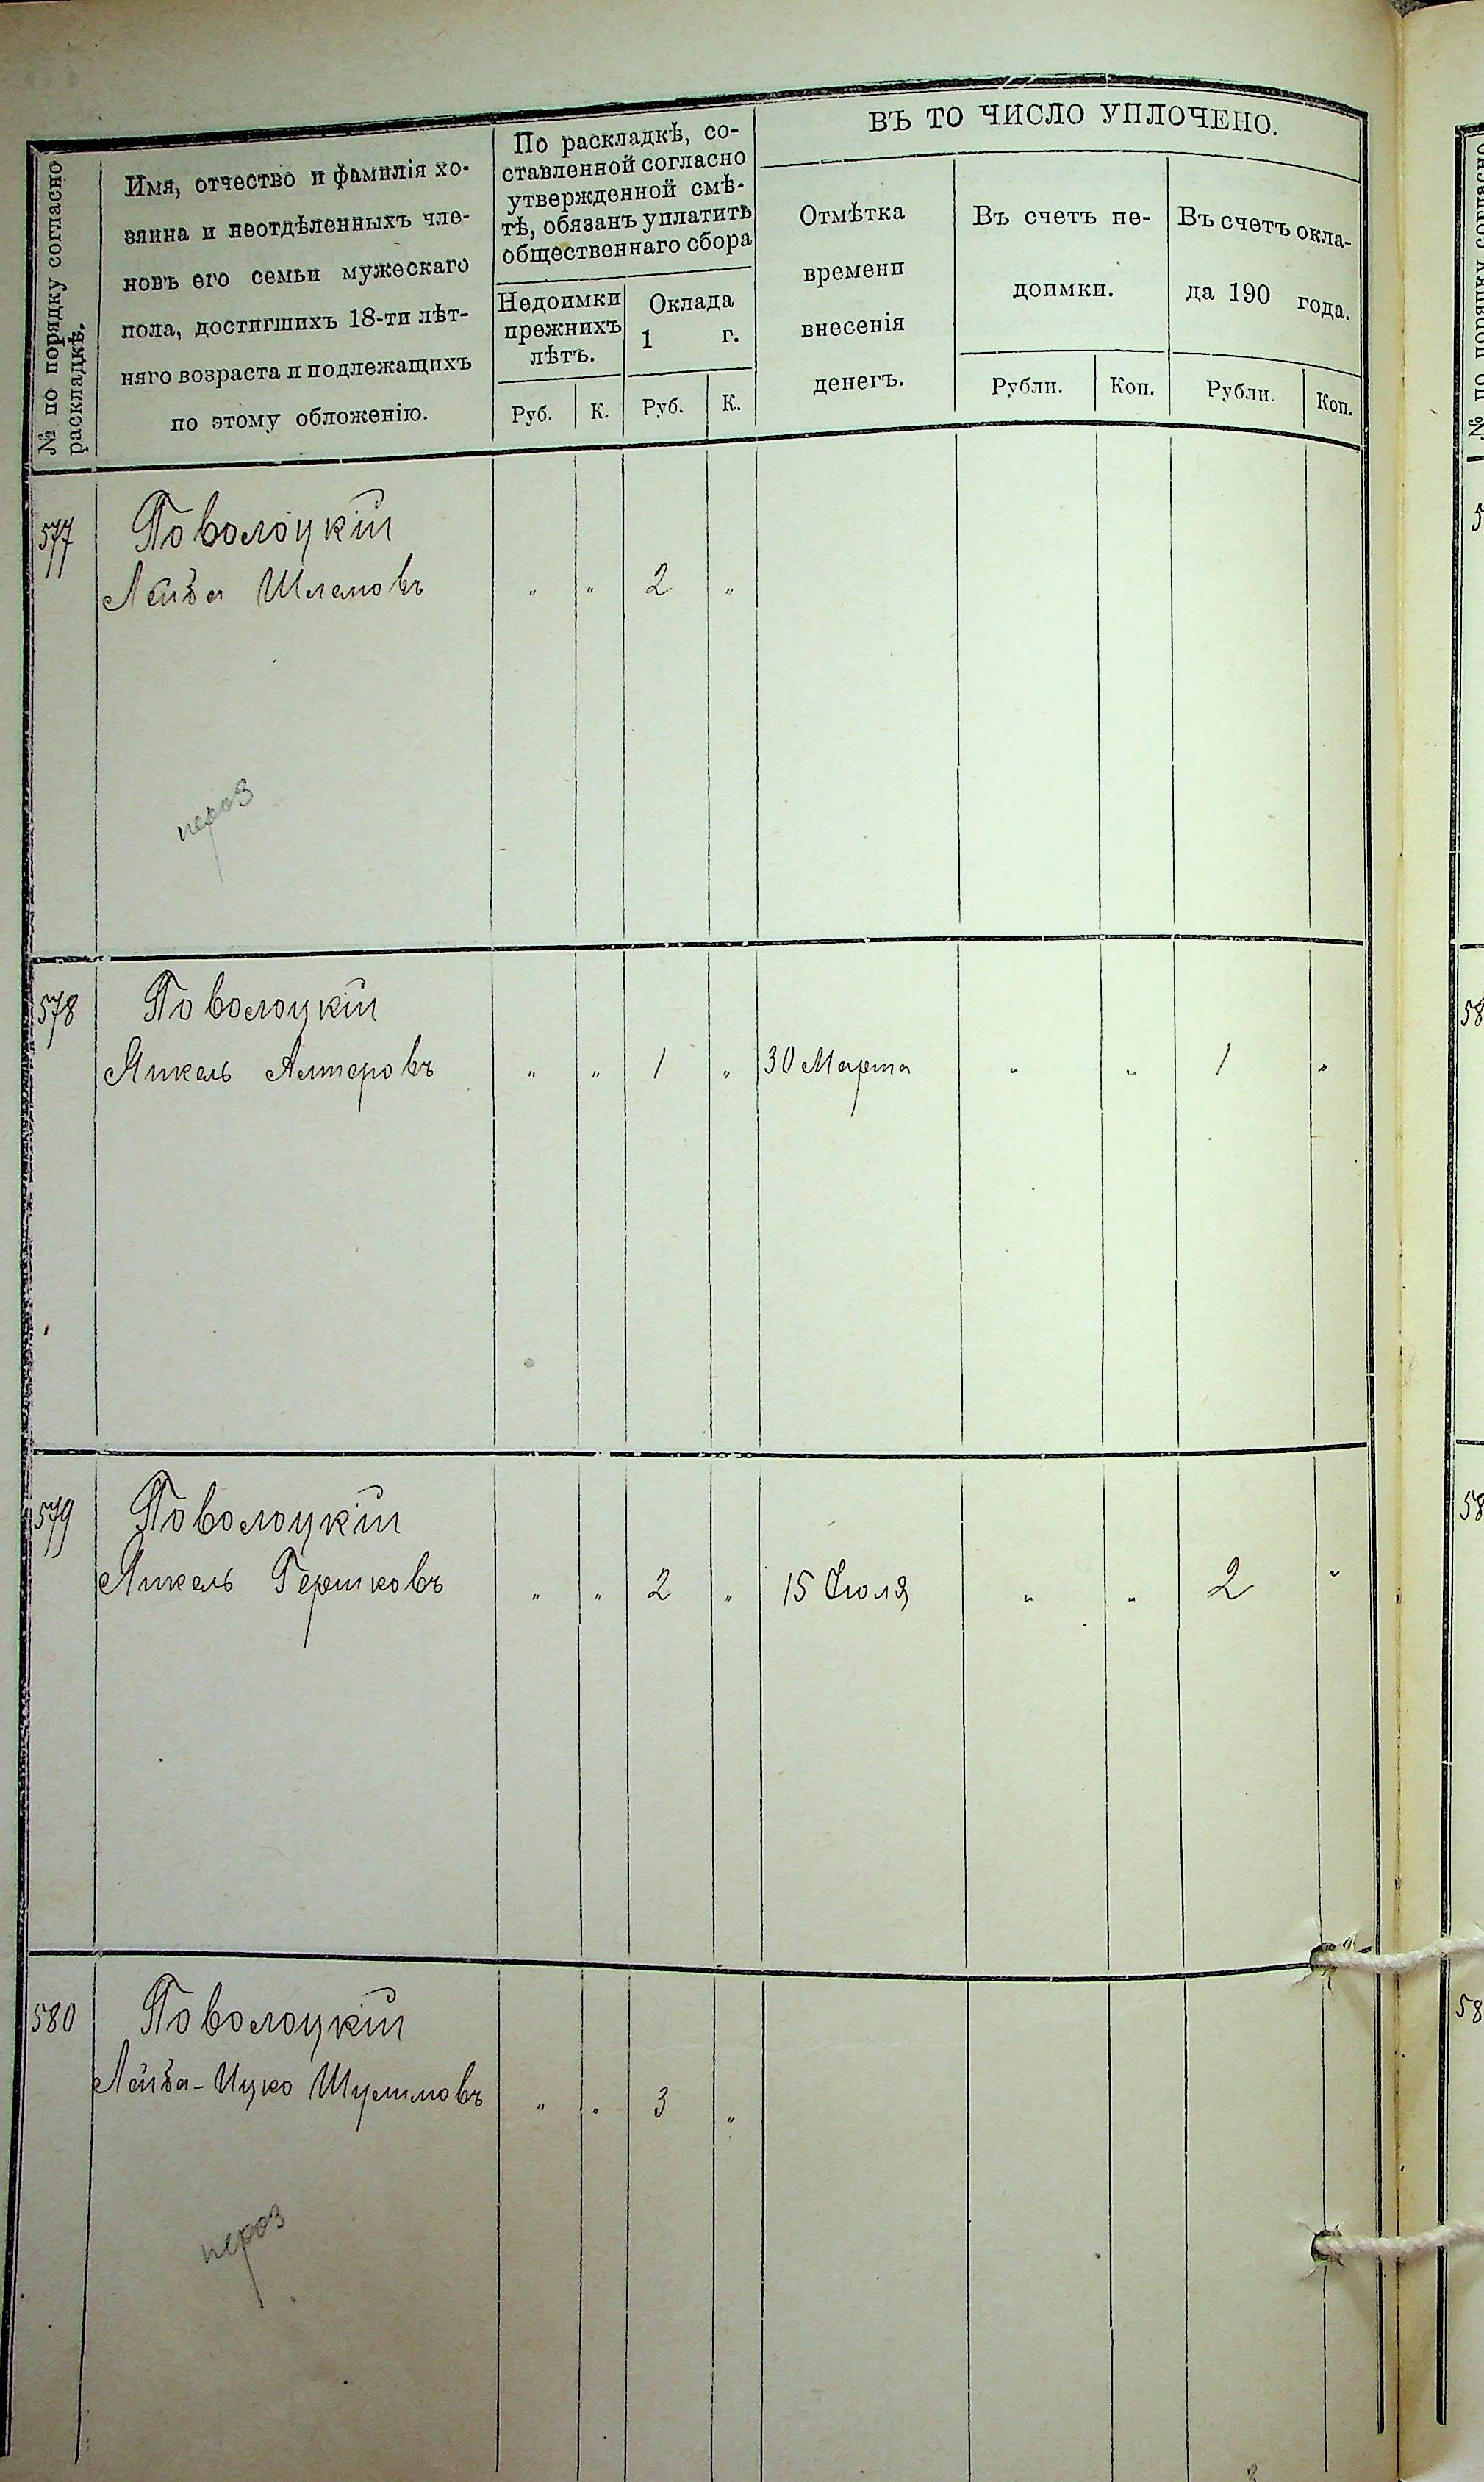 № по порядку согласно
раскладкѣ.
Имя, отчество и фамилія хо-
зяина и неотдѣленныхъ чле-
новъ его семьи мужескаго
пола, достигшихъ 18-ти лѣт-
няго возраста и подлежащихъ
по этому обложенію.
По раскладкѣ, со-
ставленной согласно
утвержденной смѣ-
тѣ, обязанъ уплатить
общественнаго сбора
Недоимки
прежнихъ
лѣтъ.
Оклада
1 г.
Руб. К. Руб. К.
ВЪ ТО ЧИСЛО УПЛОЧЕНО.
Отмѣтка
времени
внесенія
денегъ.
Въ счетъ не-
доимки.
Въ счетъ окла-
да 190 года.
Рубли. Коп. Рубли. Коп.
577 Поволоцкій
Лейба Шлемовъ " " 2 "
578 Поволоцкій
Янкель Алтеровъ " " 1 " 30 Марта " " 1 "
579 Поволоцкій
Янкель Гершковъ " " 2 " 15 Іюля " " 2 "
580 Поволоцкій
Лейба-Ицко Шулимовъ " " 3 "
№ по порядку согласно
58
58
58